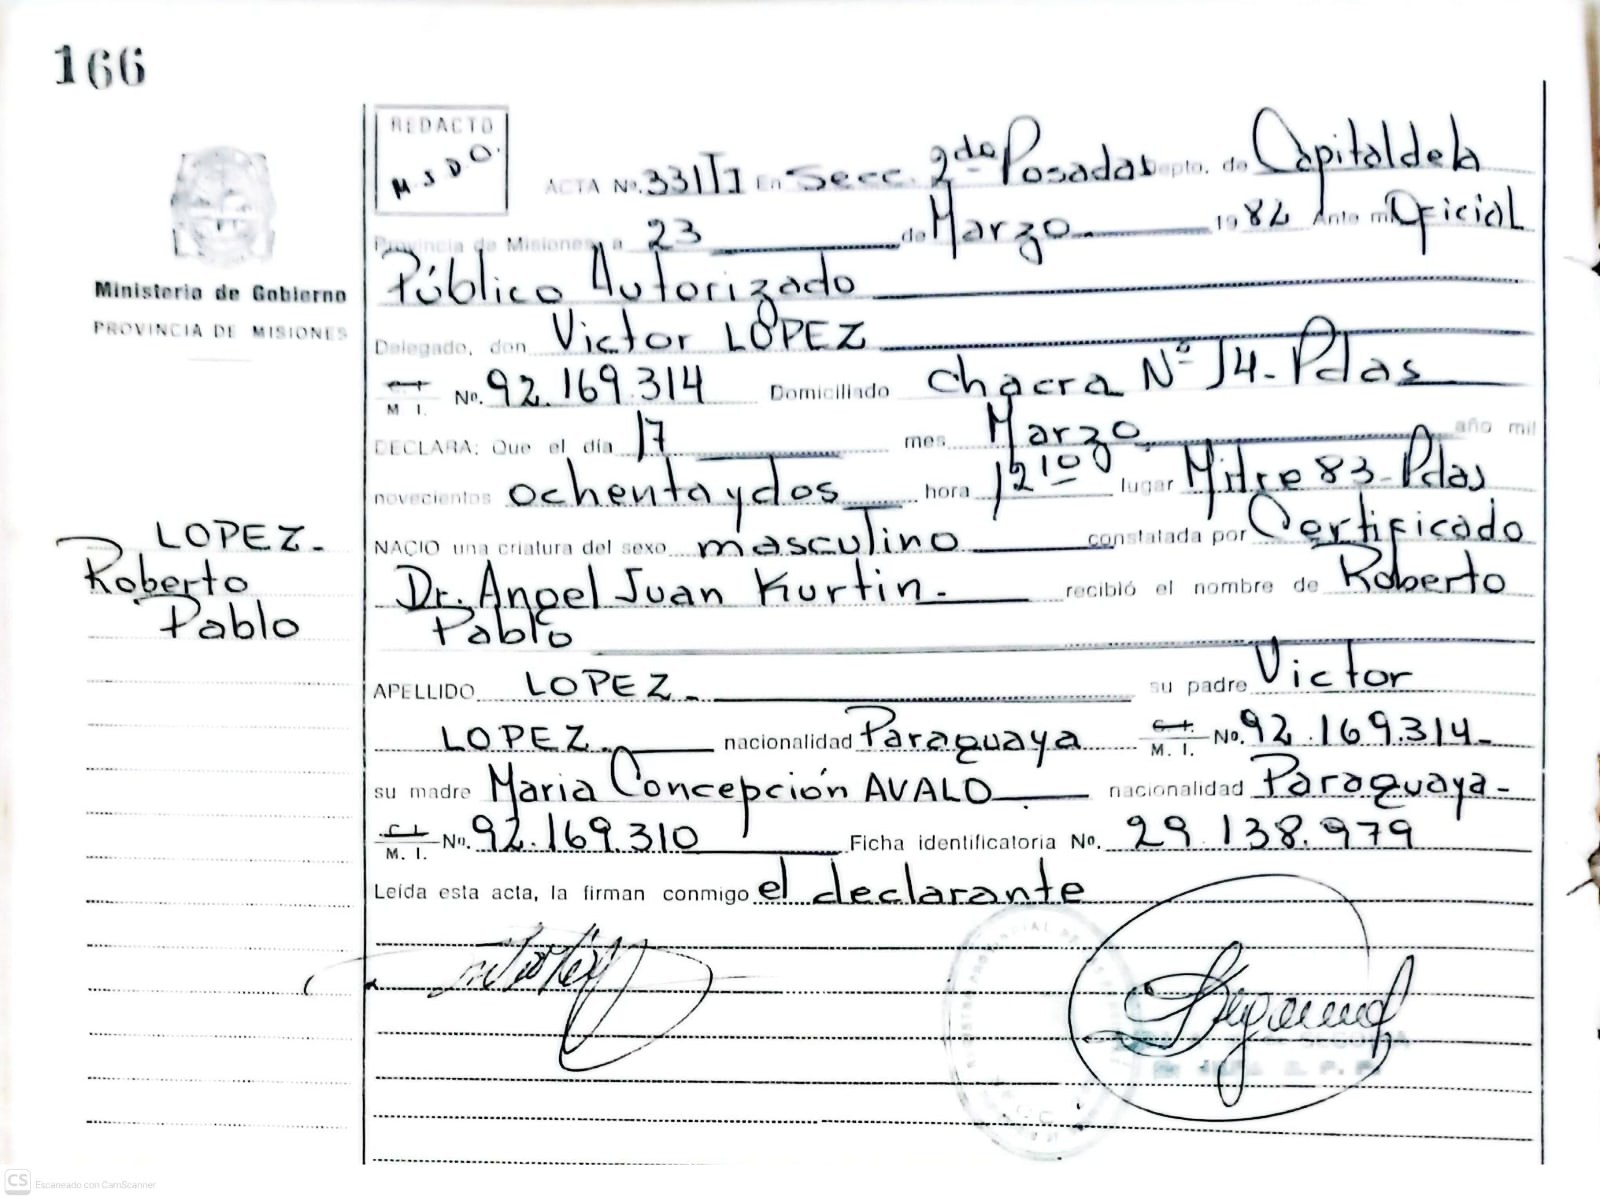 166
REDACTO
M.S.D.O.
ACTA No. 331TI En Secc. 2da Posadas Depto. de Capital de la
Provincia de Misiones, a 23 de Marzo 1982 Ante mi Oficial
Público Autorizado
Ministerio de Gobierno
PROVINCIA DE MISIONES
Delegado, don Victor LOPEZ
C.I. M. I. No. 92.169.314 Domiciliado Chacra Nº 14- Pdas
DECLARA: Que el día 17 mes Marzo año mil
novecientos ochenta y dos hora 12 10 lugar Mitre 83- Pdas
LOPEZ-
Roberto
Pablo
NACIO una criatura del sexo masculino constatada por Certificado
Dr. Angel Juan Kurtin- recibió el nombre de Roberto
Pablo
APELLIDO LOPEZ- su padre Victor
LOPEZ- nacionalidad Paraguaya C.I. M. I. No. 92.169.314-
su madre Maria Concepción AVALO nacionalidad Paraguaya-
C.I. M. I. No. 92.169.310 Ficha identificatoria No. 29.138.979
Leída esta acta, la firman conmigo el declarante
CS Escaneado con CamScanner